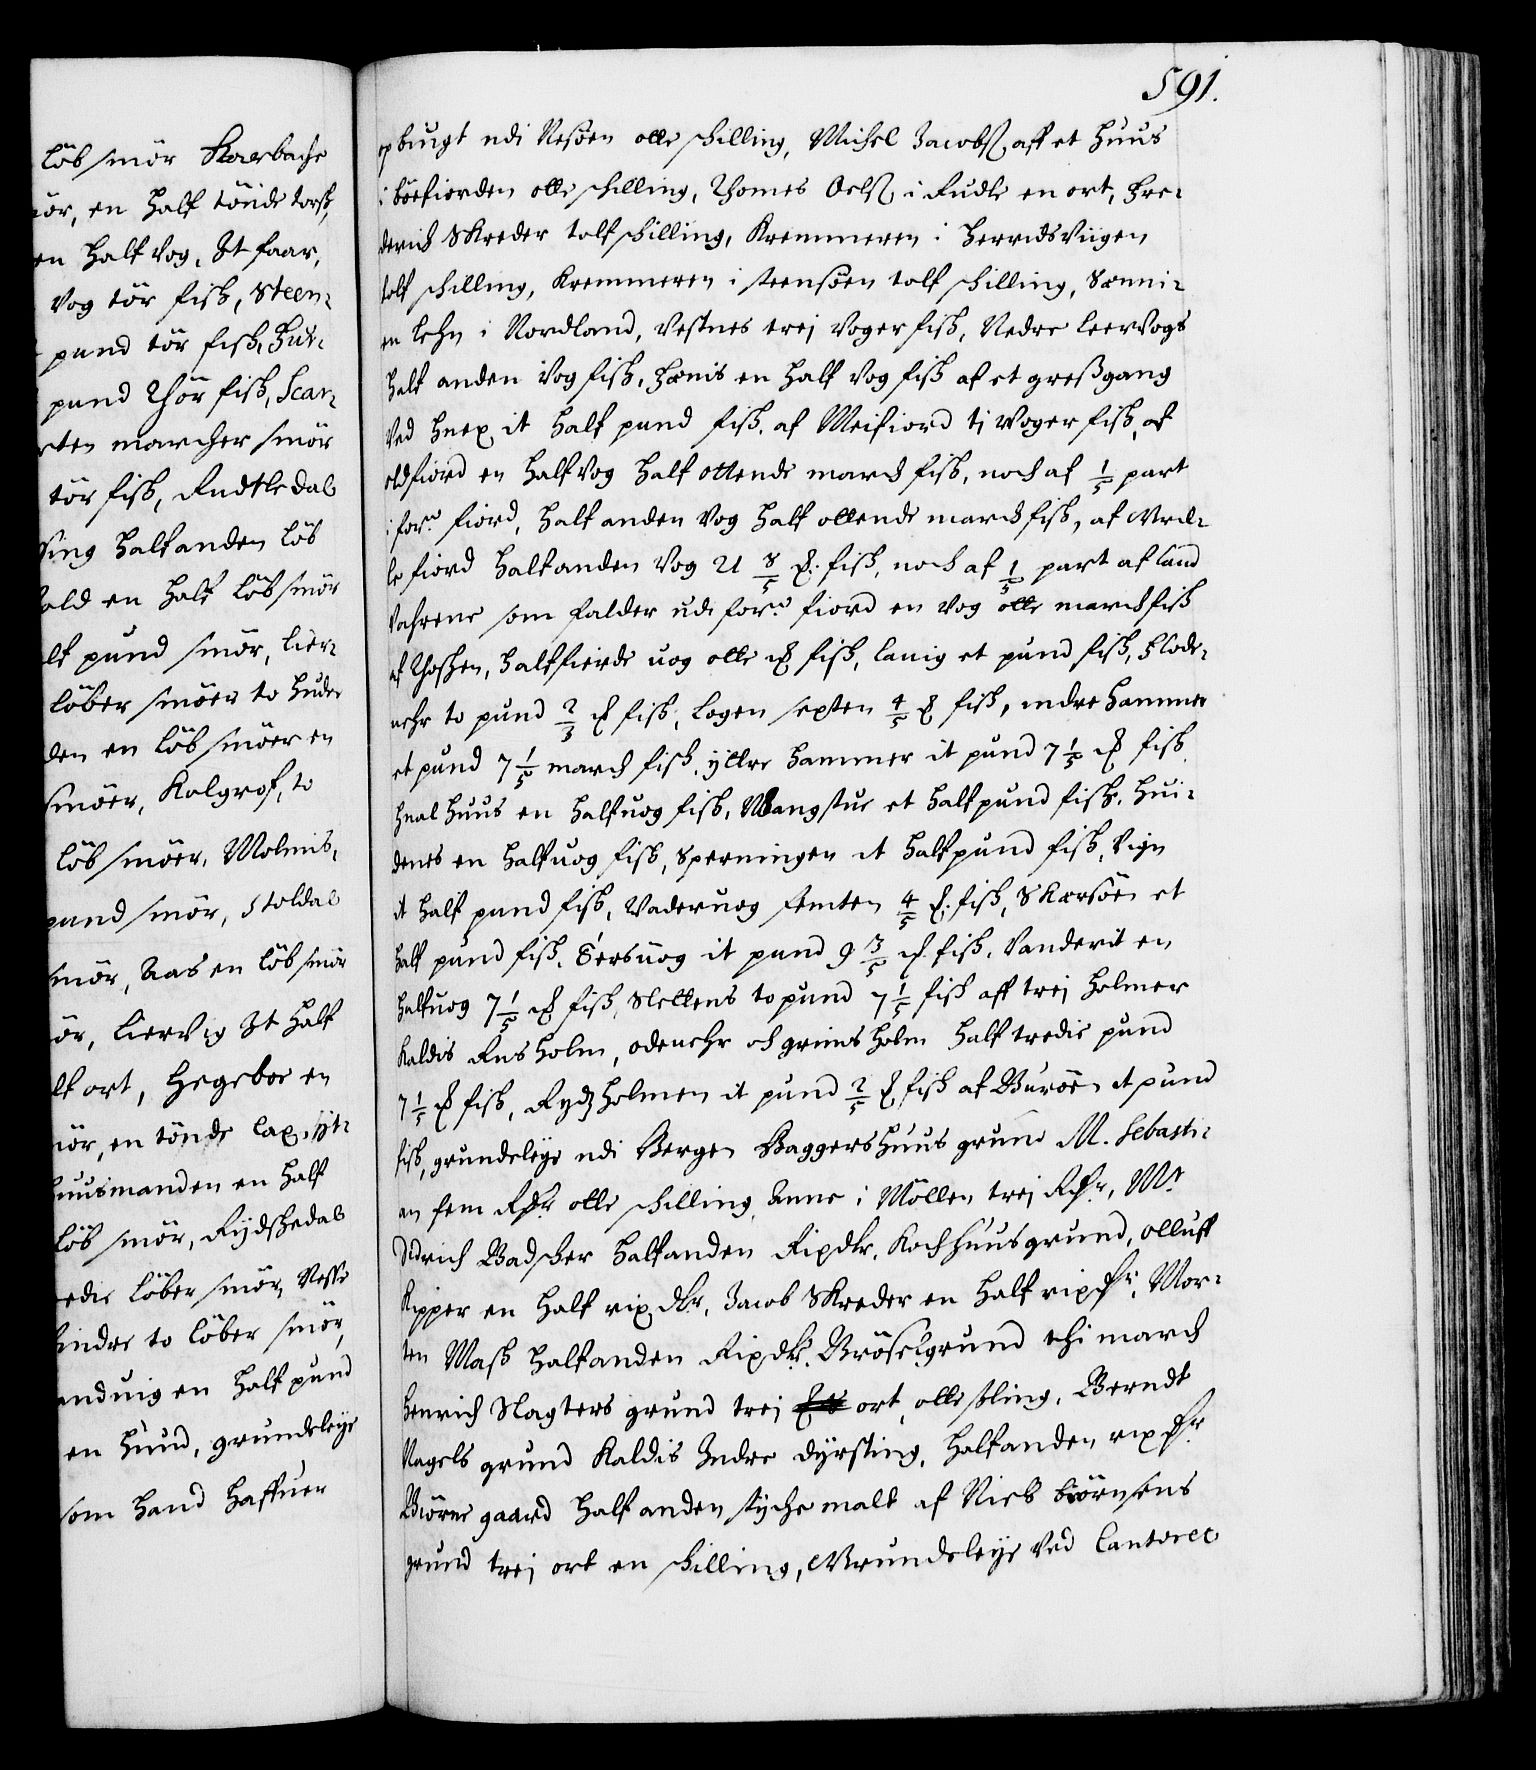 løb smør Skarbache
ør, en half tønde torsk,
en half Vog, It faar,
Vog tør fisk, Steen-
pund tør fisk, Hus-
pund Thør fisk, Scar-
rten marcher smør
tør fisk, Endtledal
sing halfanden løb
ald en half løb smør
lf pund smør, Lier-
løber smøer to huder
den en løb smøer en
smøer, Kalgrof, to
løb smøer, Molnis,
pund smør, Stoldal
smør, Aas en løb smør
ør, Liervig It half
lf ort, Hegeboe en
ør, en tønde lax, it-
huusmanden en half
løb smør, Rydshedal
edie løber smør, Nesse
indre to løber smør,
anduig en half pund
en hund, grundeleye
som hand haffuer
591.
opbiugt udi Nesøen otte skilling, Michel Jacobs. aff et huus
i Bøefiorden otte skilling, Thomes Oels. i Rudle en ort, Fre-
derich Skreder tolf skilling, Kremmeren i Herridsviigen
tolf skilling, Kremmeren i Steensøen tolf skilling, Sønni-
en lehn i Nordland, Vestnes trej Voger fisk, Nedre Leervogs
half anden Vog fisk, Hønis en half Vog fisk af et græsgang
Ved hnex it half pund fisk. af Meifiord tj Voger fisk, af
oldfiord en half Vog half ottende march fisk, noch af 1/5 part
i forne fiord, half anden Vog half ottende march fisk, af Mel-
le fiord halfanden Vog 21 3/5 m&. fisk, noch af 1/5 part af land
Vahrene som falder udi forne fiord en Vog otte march fisk
af Thoschen, halffierde uog otte m& fisk, Lauig et pund fisk, Flode-
nehr to pund 2/3 m& fisk, Logen sexten 4/5 m& fisk, indre hammer
et pund 7 1/5 march fisk, yttre hammer it pund 7 1/5 m& fisk.
hual huus en halfuog fisk, Mangstue et half pund fisk. Hui-
denes en halfuog fisk, Sperningen it half pund fisk, Vign
it half pund fisk, Vaderuog femten 4/5 m&. fisk, Skarsøen et
half pund fisk. Sersuog it pund 9 3/5 m& fisk. Vanderit en
halfuog 7 1/5 m& fisk, Slettenes to pund 7 1/5 fisk aff trej holmer
kaldis Rusholm, odenehr och grimsholm half tredie pund
7 1/5 m& fisk, Rydzholmen it pund 2/5 m& fisk af Burøen it pund
fisk, grundeleye udi Bergen Baggershuus grund M. Sebasti-
an fem Rdr. otte skilling Anne i Møllen trej Rdr., Mr
Didrich Badscher halfanden Rixdlr. Kochhuusgrund, Olluff
Kipper en half rix dlr, Jacob Skreder en half rixdr, Mor-
ten Mass halfanden Rixdlr. Brøselsgrund thi march
Henrich Slagters grund trej ort, otte skling, Berndt
Nagels grund kaldis Indre dyrsting, halfanden rixdr
Biørns gaard half anden stychemalt af Niels Biørnsens
grund trej ort en skilling, Grundeleye Ved Cantoret